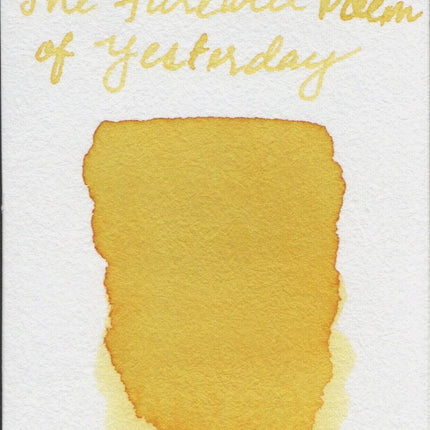 The Farewell Poem
of Yesterday